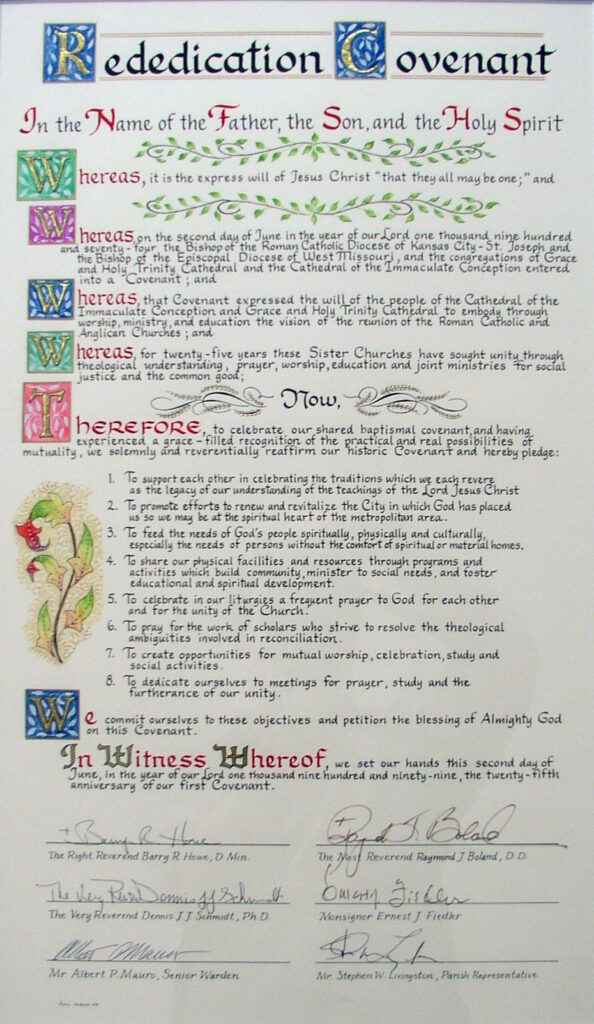 Rededication Covenant
In the Name of the Father, the Son, and the Holy Spirit
Whereas, it is the express will of Jesus Christ "that they all may be one;" and
Whereas on the second day of June in the year of our Lord one thousand, nine hundred
and seventy-four the Bishop of the Roman Catholic Diocese of Kansas City-St. Joseph and
the Bishop of the Episcopal Diocese of West Missouri, and the congregations of Grace
and Holy Trinity Cathedral and the Cathedral of the Immaculate Conception entered
into a Covenant; and
Whereas, that Covenant expressed the will of the people of the Cathedral of the
Immaculate Conception and Grace and Holy Trinity Cathedral to embody through
worship, ministry, and education the vision of the reunion of the Roman Catholic and
Anglican Churches; and
Whereas, for twenty-five years these Sister Churches have sought unity through
theological understanding, prayer, worship, education and joint ministries for social
justice and the common good;
Now,
Therefore, to celebrate our shared baptismal covenant, and having
experienced a grace-filled recognition of the practical and real possibilities of
mutuality, we solemnly and reverentially reaffirm our historic Covenant and hereby pledge:
1. To support each other in celebrating the traditions which we each revere
as the legacy of our understanding of the teachings of the Lord Jesus Christ
2. To promote efforts to renew and revitalize the City in which God has placed
us so we may be at the spiritual heart of the metropolitan area.
3. To feed the needs of God's people spiritually, physically and culturally,
especially the needs of persons without the comfort of spiritual or material homes.
4. To share our physical facilities and resources through programs and
activities which build community, minister to social needs, and foster
educational and spiritual development.
5. To celebrate in our liturgies a frequent prayer to God for each other
and for the unity of the Church.
6. To pray for the work of scholars who strive to resolve the theological
ambiguities involved in reconciliation.
7. To create opportunities for mutual worship, celebration, study and
social activities.
8. To dedicate ourselves to meetings for prayer, study and the
furtherance of our unity.
We commit ourselves to these objectives and petition the blessing of Almighty God
on this Covenant.
In Witness Whereof, we set our hands this second day of
June, in the year of our Lord one thousand nine hundred and ninety-nine, the twenty-fifth
anniversary of our first Covenant.
+ Barry R. Howe
Raymond J. Boland
The Right Reverend Barry R. Howe, D. Min.
The Most Reverend Raymond J. Boland, D.D.
The Very Rev. Dennis J J Schmidt
The Very Reverend Dennis J.J. Schmidt, Ph.D.
Monsignor Ernest J. Fiedler
Mr. Albert P. Mauro, Senior Warden
Mr. Stephen W. Livingston, Parish Representative